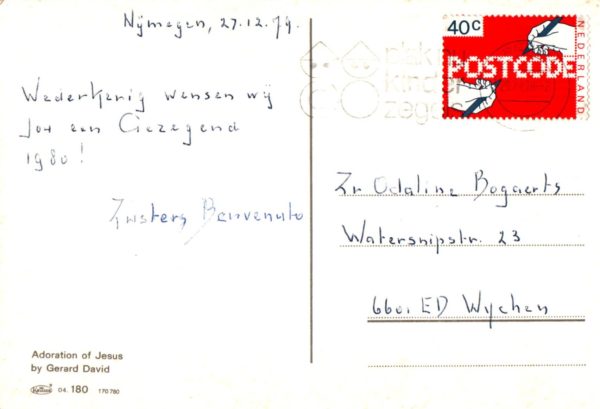 Nijmegen, 27.12.79.
Wederkerig wensen wij
Jou een Gezegend
1980!
Zusters Benvenuto
Adoration of Jesus
by Gerard David
04. 180 170 780
40c
NEDERLAND
POSTCODE
plak nu
kinder
zegels
Zr Odaline Bogaerts
Watersnipstr. 23
6601 ED Wychen